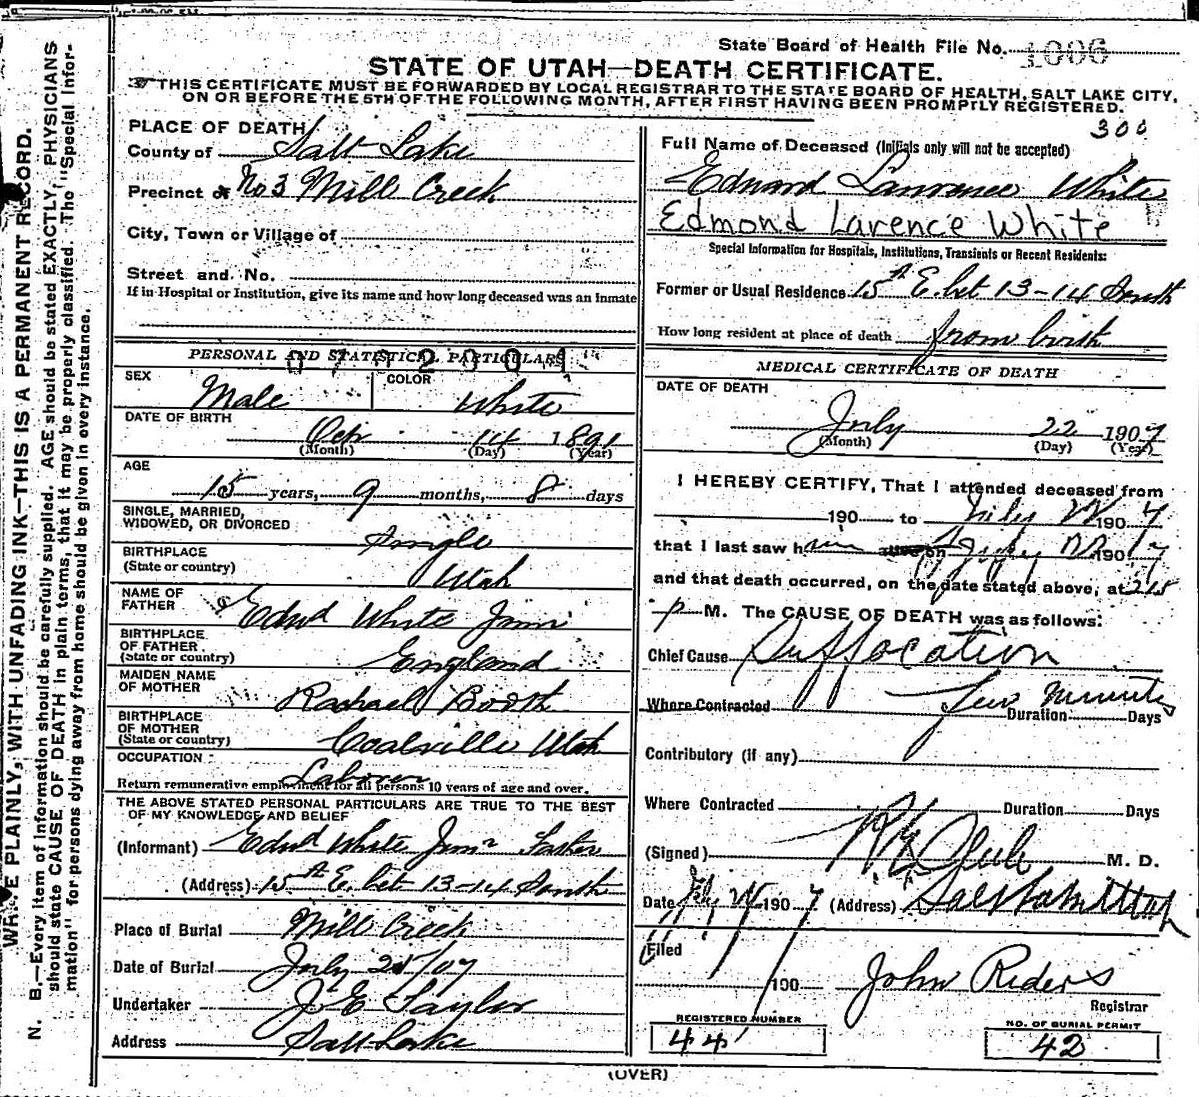 State Board of Health File No. 1006
STATE OF UTAH—DEATH CERTIFICATE.
THIS CERTIFICATE MUST BE FORWARDED BY LOCAL REGISTRAR TO THE STATE BOARD OF HEALTH, SALT LAKE CITY,
ON OR BEFORE THE 5TH OF THE FOLLOWING MONTH, AFTER FIRST HAVING BEEN PROMPTLY REGISTERED.
300
WRITE PLAINLY, WITH UNFADING INK—THIS IS A PERMANENT RECORD.
N. B.—Every item of information should be carefully supplied. AGE should be stated EXACTLY, PHYSICIANS
should state CAUSE OF DEATH in plain terms, that it may be properly classified. The "Special Infor-
mation" for persons dying away from home should be given in every instance.
PLACE OF DEATH
County of Salt Lake
Precinct of No 3 Mill Creek
City, Town or Village of
Street and No.
If in Hospital or Institution, give its name and how long deceased was an Inmate
PERSONAL AND STATISTICAL PARTICULARS
SEX Male COLOR White
DATE OF BIRTH
Oct 14 1891
(Month) (Day) (Year)
AGE
15 years, 9 months, 8 days
SINGLE, MARRIED,
WIDOWED, OR DIVORCED Single
BIRTHPLACE
(State or country) Utah
NAME OF
FATHER Edwd White Junr
BIRTHPLACE
OF FATHER
(State or country) England
MAIDEN NAME
OF MOTHER Rachael Booth
BIRTHPLACE
OF MOTHER
(State or country) Coalville Utah
OCCUPATION
Laborer
Return remunerative employment for all persons 10 years of age and over.
THE ABOVE STATED PERSONAL PARTICULARS ARE TRUE TO THE BEST
OF MY KNOWLEDGE AND BELIEF
(Informant) Edwd White Junr Father
(Address) 15th E. bet 13-14 South
Place of Burial Mill Creek
Date of Burial July /07
Undertaker J E Taylor
Address Salt Lake
Full Name of Deceased (Initials only will not be accepted)
Edward Lawrence White
Edmond Larence White
Special Information for Hospitals, Institutions, Transients or Recent Residents:
Former or Usual Residence 15th E. bet 13-14 South
How long resident at place of death from birth
MEDICAL CERTIFICATE OF DEATH
DATE OF DEATH
July 22 1907
(Month) (Day) (Year)
I HEREBY CERTIFY, That I attended deceased from
190 to July 22 1907
that I last saw him alive on July 22 1907
and that death occurred, on the date stated above, at 2 15
P M. The CAUSE OF DEATH was as follows:
Chief Cause Suffocation
Where Contracted few minutes Duration Days
Contributory (if any)
Where Contracted Duration Days
(Signed) M. D.
Date July 1907 (Address) Salt Lake Utah
Filed
190 John Riders
Registrar
REGISTERED NUMBER
44
NO. OF BURIAL PERMIT
42
(OVER)